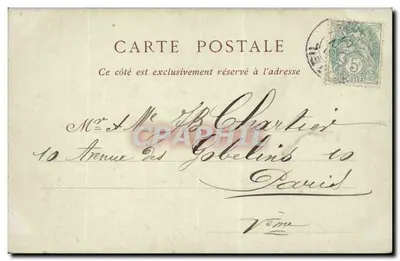 CARTE POSTALE
Ce côté est exclusivement réservé à l'adresse
5
Mr & Me JB Chartier
CPAPHIL
10 Avenue des Gobelins 10
Paris
Vème